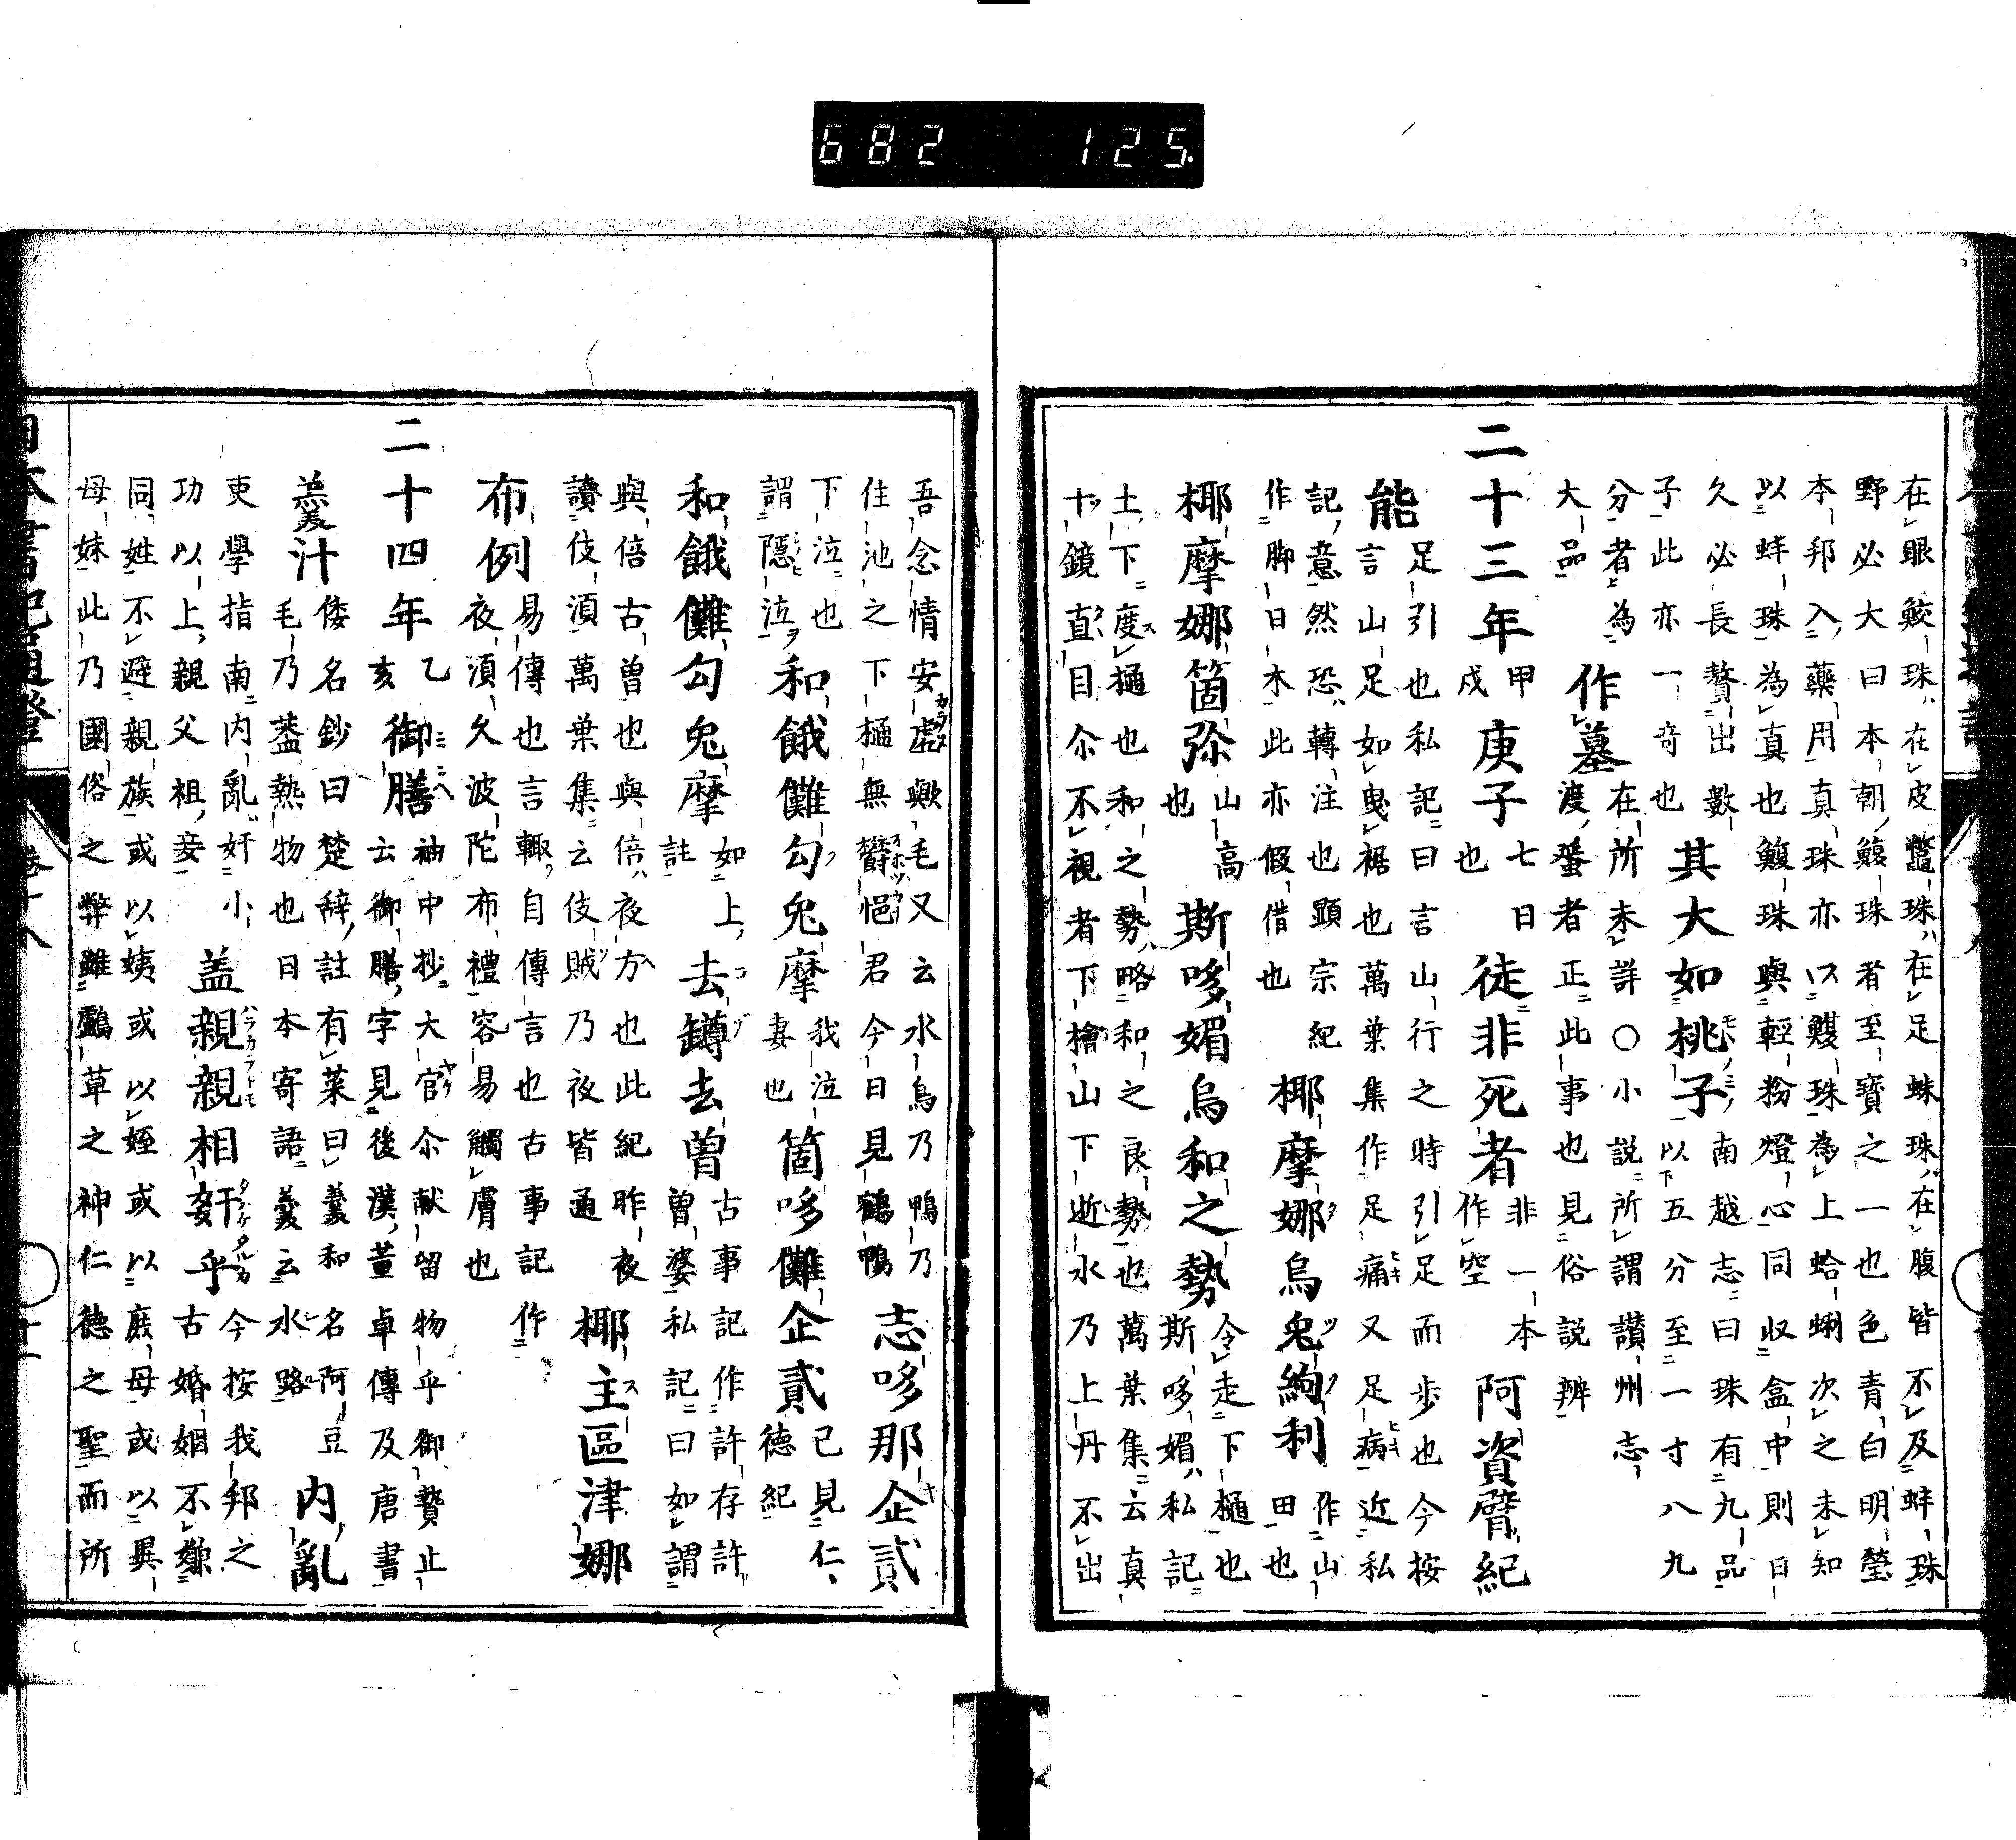 682 125.
在眼鮫珠在皮鼈珠在足蛛珠在腹皆不及蚌珠
野必大曰本朝鰒珠者至寶之一也色青白明瑩
本邦入藥用真珠亦以鰒珠為上蛤蜊次之未知
以蚌珠為真也鰒珠與輕粉燈心同收盒中則日
久必長贅出數
子此亦一奇也 其大如桃子 南越志曰珠有九品
以下五分至一寸八九
分者為
大品 作墓 在所未詳○小說所謂讃州志
渡蜑者正此事也見俗說辨
二十三年 甲
戌 庚子 七日
也 徒非死者 非一本
作空 阿資臂紀
能 足引也私記曰言山行之時引足而步也今按
言山足如曳裾也萬葉集作足痛又足病近私
記意然恐轉注也顯宗紀
作脚日木此亦假借也 椰摩娜烏兔絢利 作山
田也
椰摩娜箇弥 山高
也 斯哆媚烏和之勢 令走下樋也
斯哆媚私記
土下度樋也和之勢略和之良勢也萬葉集云真
十鏡直目尒不視者下檜山下逝水乃上丹不出
吾念情安虛歟毛又云水鳥乃鴨乃
住池之下樋無欝悒君今日見鶴鴨 志哆那企貳
下泣也
謂隱泣 和餓儺勾兔摩 我泣
妻也 箇哆儺企貳 已見仁
德紀
和餓儺勾兔摩 如上
註 去鐏去曽 古事記作許存許
曽婆私記曰如謂
與倍古曽也與倍夜方也此紀昨夜
讀伎湏萬葉集云伎賊乃夜皆通 椰主區津娜
布例 易傳也言輙自傳言也古事記作
夜湏久波陀布禮容易觸膚也
二十四年 乙
亥 御膳 袖中抄大官尒献留物乎御贄止
云御膳字見後漢董卓傳及唐書
羹汁 倭名鈔曰楚辭註有菜曰羹和名阿豆
毛乃葢熱物也日本寄語羹云水路 内亂
吏學指南内亂奸小
功以上親父祖妾 盖親親相姧乎 今按我邦之
古婚姻不嫌
同姓不避親族或以姨或以姪或以庶母或以異
母妹此乃國俗之弊雖鸕草之神仁德之聖而所